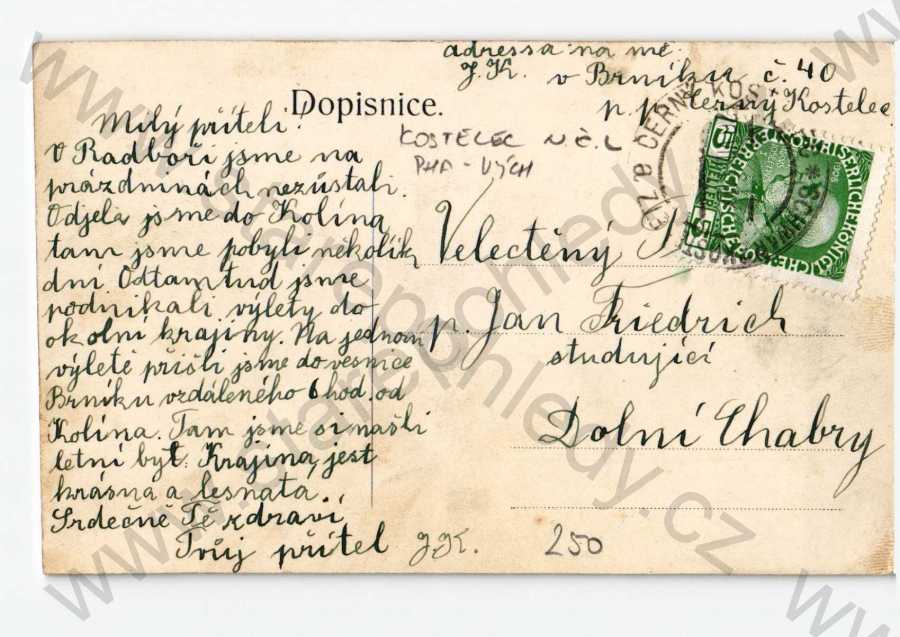 adressa na mě.
J. K. v Brníku č. 40
p. p. Černý Kostelec
Dopisnice.
KOSTELEC N Č. L
PHA - VÝCH
Milý příteli!
V Radboři jsme na
prázdninách nezůstali.
Odjela jsme do Kolína
tam jsme pobyli několik
dní. Odtamtud jsme
podnikali výlety do
okolní krajiny. Na jednom
výletě přišli jsme do vesnice
Brníku vzdáleného 6 hod. od
Kolína. Tam jsme si našli
letní byt. Krajina jest
krásná a lesnata.
Srdečně Tě zdraví
Tvůj přítel J.K.
Velectěný
p. Jan Friedrich
studující
Dolní Chabry
250
5
www.starepohledy.cz